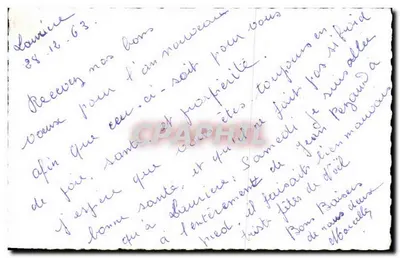 28.12.63
Recevez nos bons
voeux pour l'an nouveau
afin que ceux-ci soit pour vous
de joie, santé et prospérité
J'espère que vous êtes toujours en
bonne santé, et qu'il ne fait pas si froid
qu'à Samedi je suis allé
à l'enterrement de Jean à
pied il faisait bien mauvais
triste fêtes de Noël
Bons Baisers
de nous deux
CPAPHIL